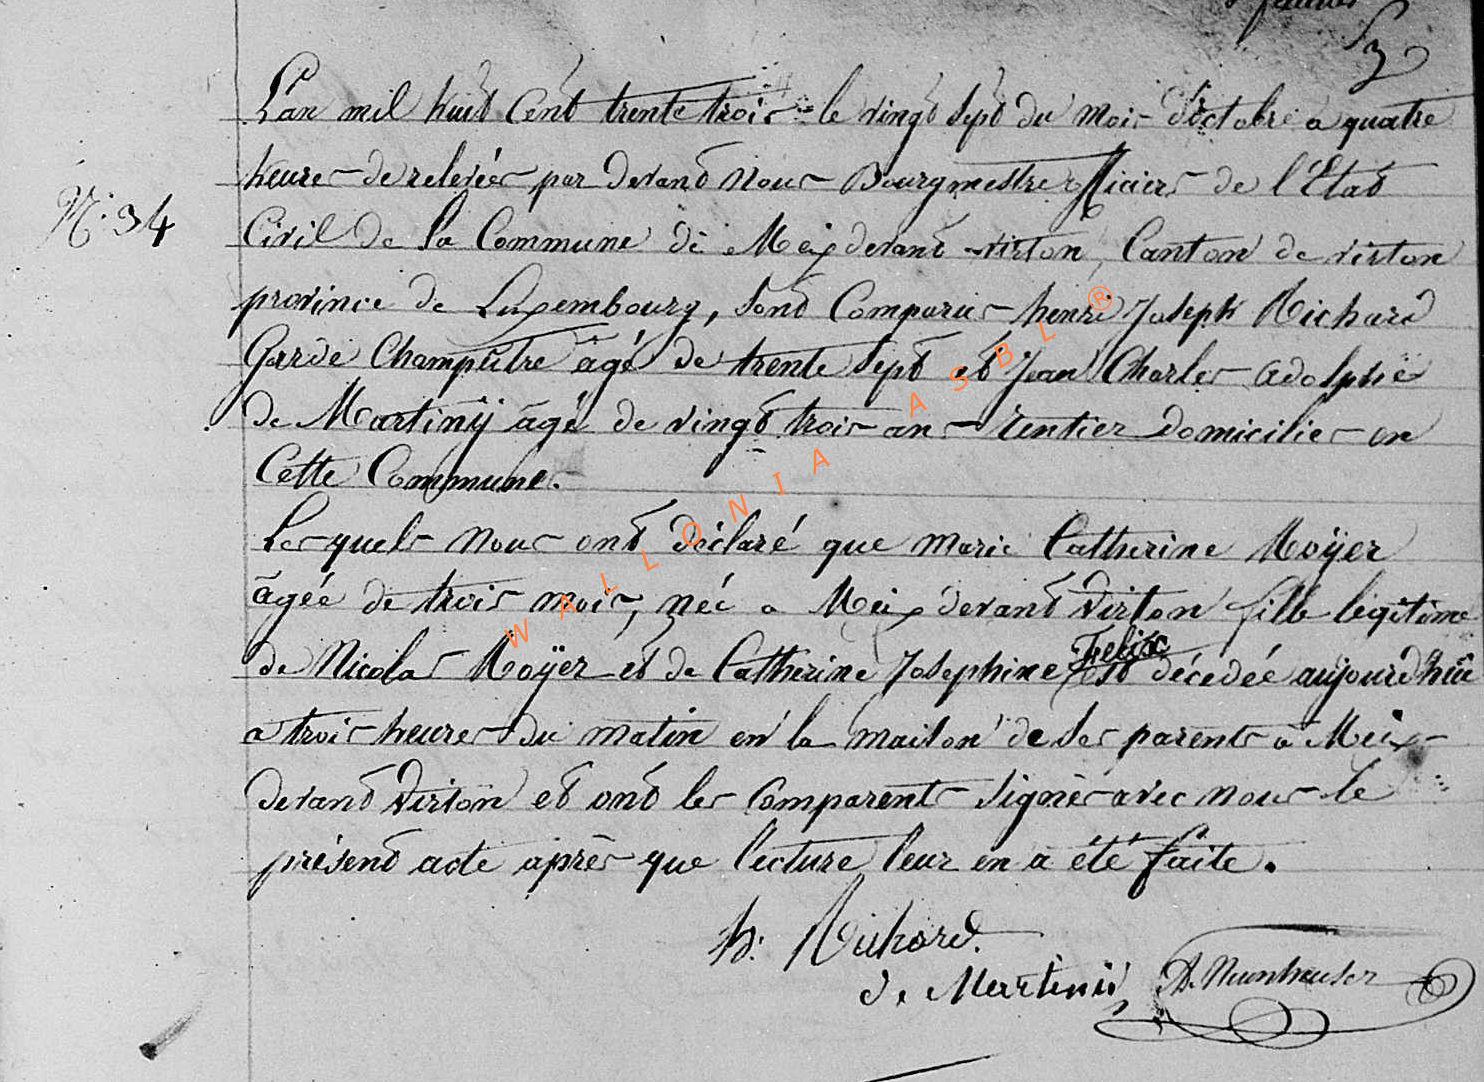 L'an mil huit Cent trente trois le vingt sept du mois d'octobre a quatre
N.° 34
heures de relevées par devant nous Bourgmestre officiers de l'Etat
Civil de la Commune de Meix devant virton, Canton de virton
province de Luxembourg, sont Comparus henri Joseph Richard
Garde Champêtre âgé de trente sept et Jean Charles adolphe
de Martinÿ âgé de vingt trois ans rentier domiciliés en
Cette Commune.
Lesquels nous ont déclaré que marie Catherine Moÿer
âgée de trois mois, née a Meix devant Virton fille légitime
de Nicolas Moÿer et de Catherine Josephine Felix est décedée aujourd'hui
a trois heures du matin en la maison de ses parents a Meix
devant Virton et ont les Comparents signés avec nous le
présent acte après que lecture leur en a été faite.
h. Richard.
d. Martinÿ
WALLONIA ASBL ®